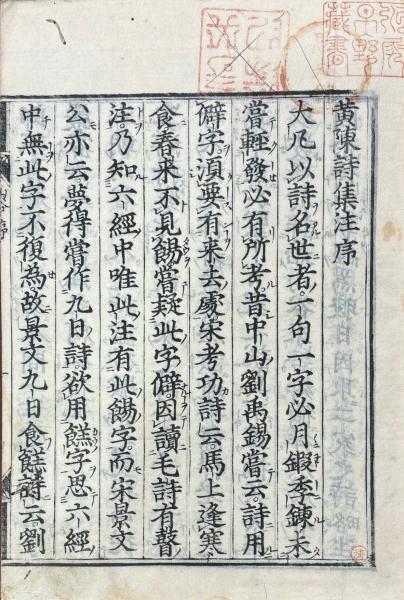 黄陳詩集注序
大凡以詩名世者一句一字必月鍛季錬未
嘗輕發必有所考昔中山劉禹錫嘗云詩用
僻字湏要有来去處宋考功詩云馬上逢寒
食春来不見餳嘗疑此字僻因讀毛詩有瞽
注乃知六經中唯此注有此餳字而宋景文
公亦云夢得嘗作九日詩欲用餻字思六經
中無此字不復為故景文九日食餻詩云劉